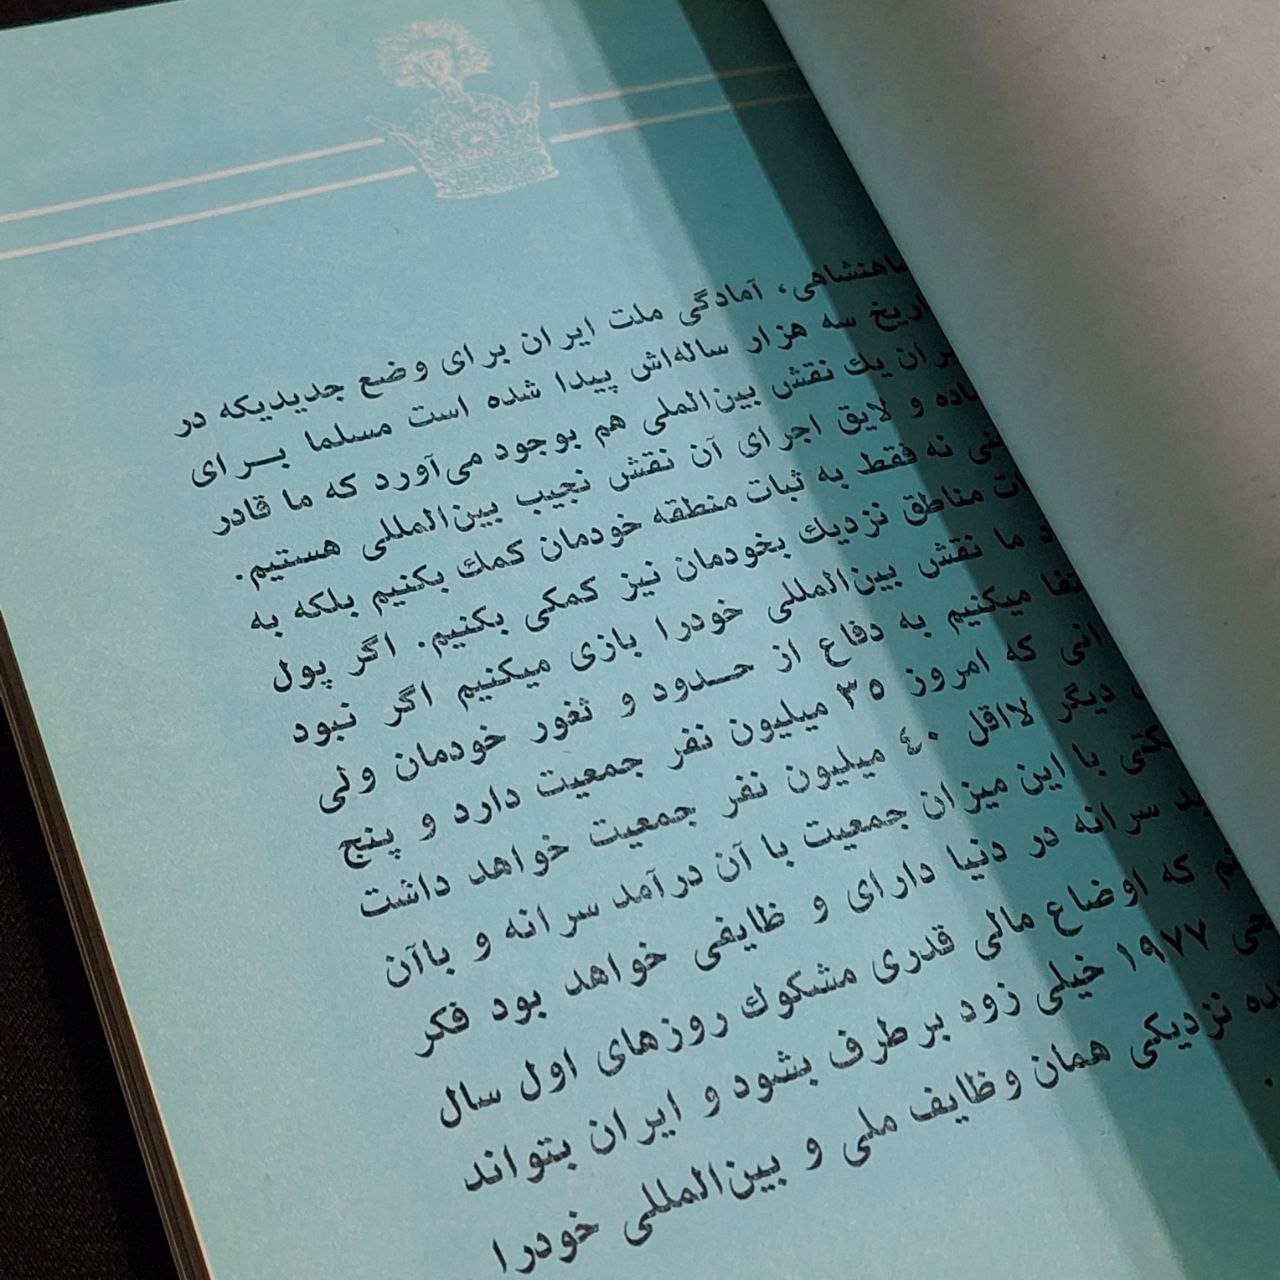 شاهنشاهی، آمادگی ملت ایران برای وضع جدیدیکه در
تاریخ سه هزار ساله‌اش پیدا شده است مسلما بـرای
یک نقش بین‌الملی هم بوجود می‌آورد که ما قادر
و لایق اجرای آن نقش نجیب بین‌المللی هستیم.
نه فقط به ثبات منطقه خودمان کمک بکنیم بلکه به
مناطق نزدیک بخودمان نیز کمکی بکنیم. اگر پول
ما نقش بین‌المللی خودرا بازی میکنیم اگر نبود
میکنیم به دفاع از حـدود و ثغور خودمان ولی
که امروز ۳۵ میلیون نفر جمعیت دارد و پنج
دیگر لااقل ۴۰ میلیون نفر جمعیت خواهد داشت
با این میزان جمعیت با آن درآمد سرانه و باآن
سرانه در دنیا دارای وظایفی خواهد بود فکر
که اوضاع مالی قدری مشکوک روزهای اول سال
۱۹۷۷ خیلی زود برطرف بشود و ایران بتواند
نزدیکی همان وظایف ملی و بین‌المللی خودرا